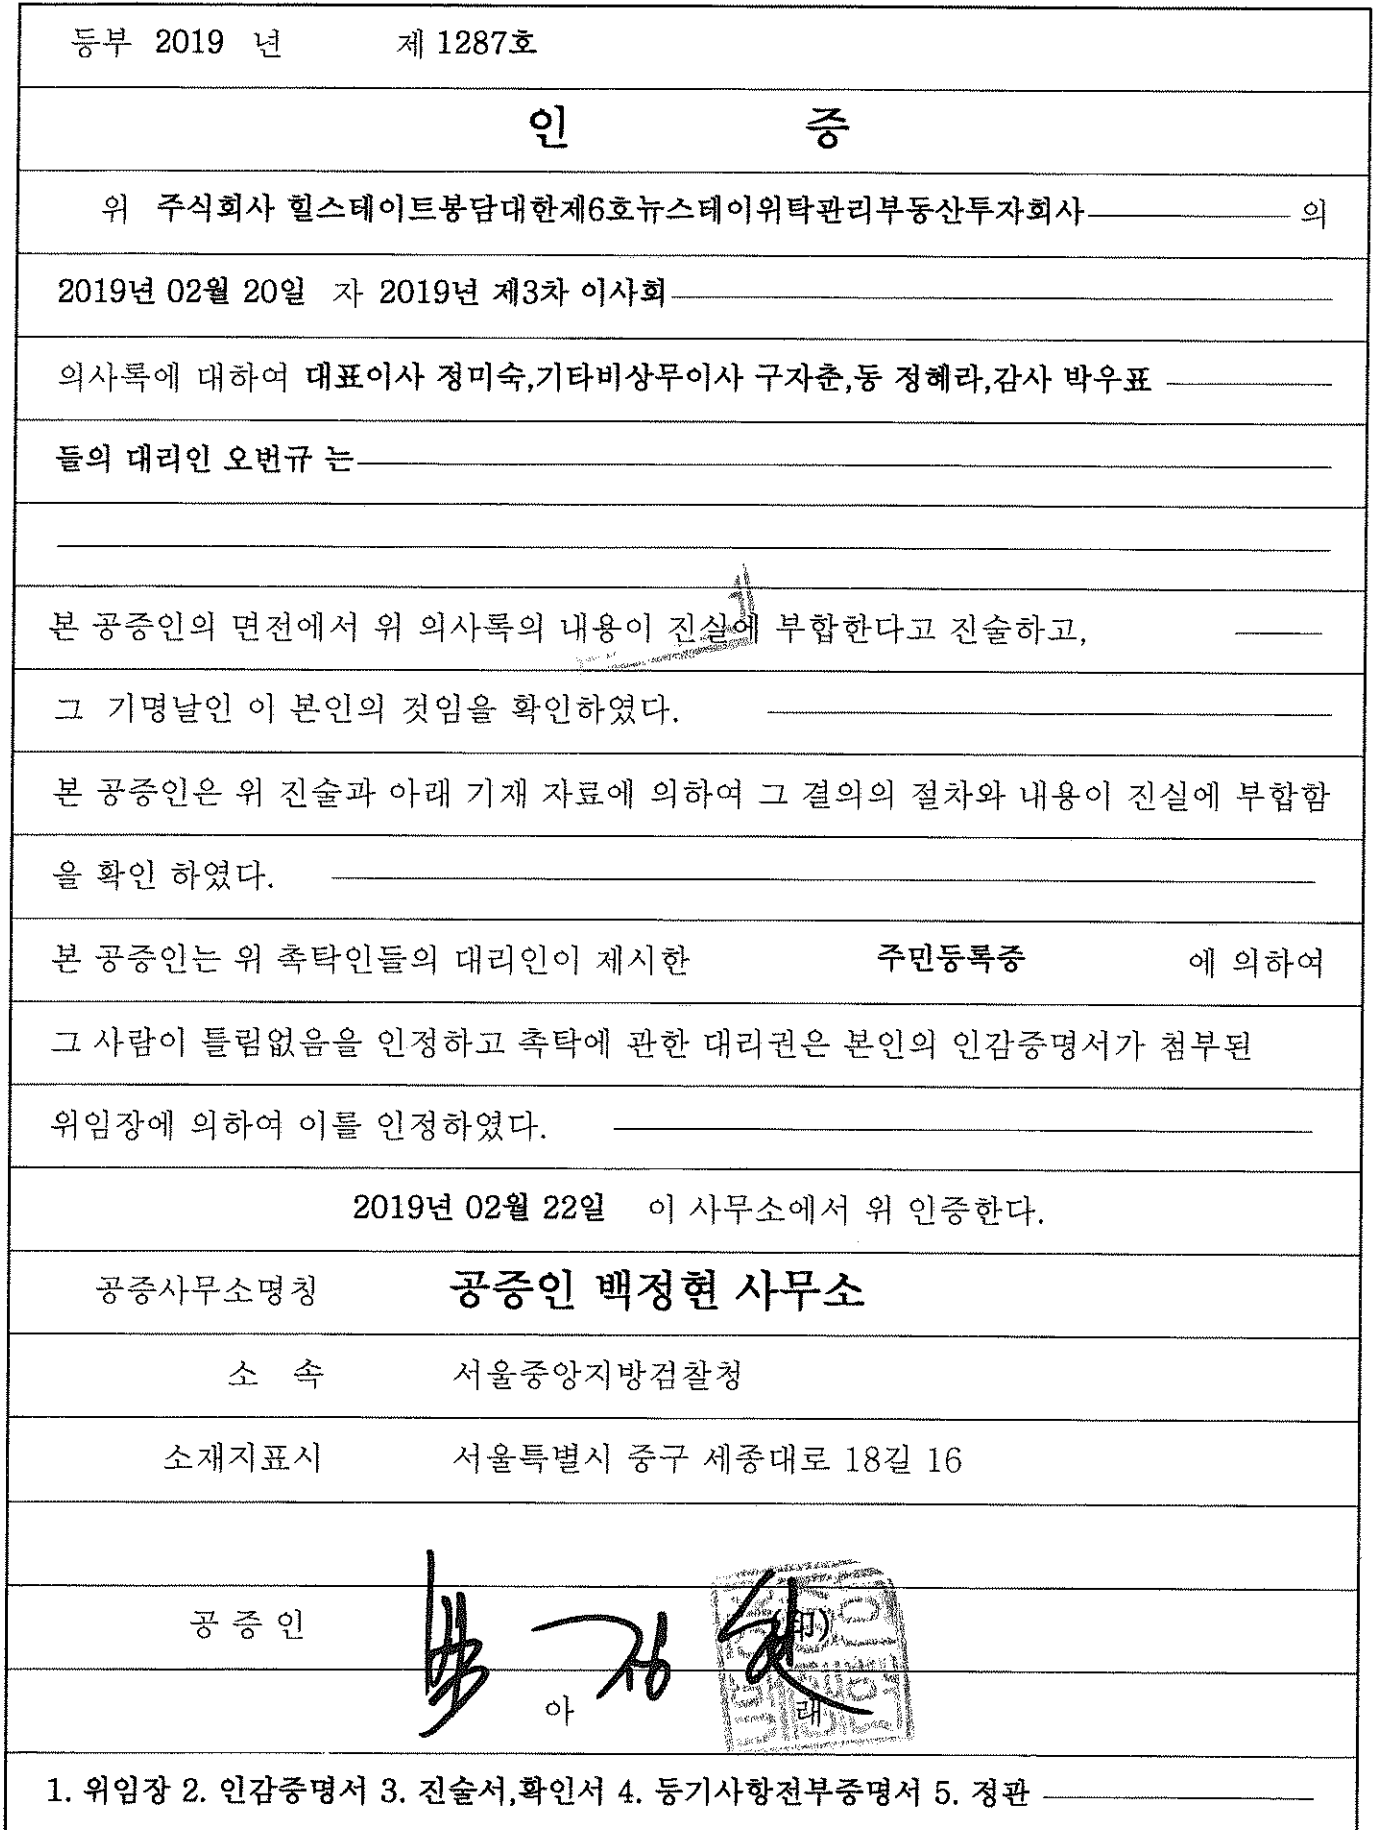 등부 2019 년 제 1287호
인 증
위 주식회사 힐스테이트봉담대한제6호뉴스테이위탁관리부동산투자회사 의
2019년 02월 20일 자 2019년 제3차 이사회
의사록에 대하여 대표이사 정미숙,기타비상무이사 구자춘,동 정혜라,감사 박우표
들의 대리인 오번규 는
본 공증인의 면전에서 위 의사록의 내용이 진실에 부합한다고 진술하고,
그 기명날인 이 본인의 것임을 확인하였다.
본 공증인은 위 진술과 아래 기재 자료에 의하여 그 결의의 절차와 내용이 진실에 부합함
을 확인 하였다.
본 공증인는 위 촉탁인들의 대리인이 제시한 주민등록증 에 의하여
그 사람이 틀림없음을 인정하고 촉탁에 관한 대리권은 본인의 인감증명서가 첨부된
위임장에 의하여 이를 인정하였다.
2019년 02월 22일 이 사무소에서 위 인증한다.
공증사무소명칭 공증인 백정현 사무소
소 속 서울중앙지방검찰청
소재지표시 서울특별시 중구 세종대로 18길 16
공 증 인 (印)
아 래
1. 위임장 2. 인감증명서 3. 진술서,확인서 4. 등기사항전부증명서 5. 정관